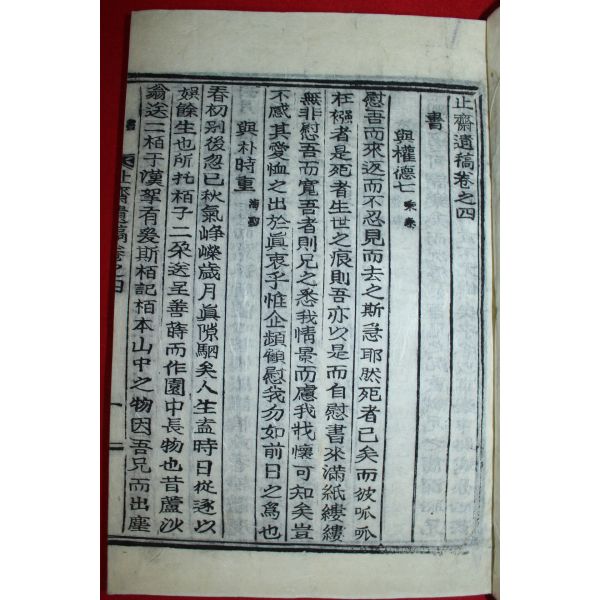 止齋遺稿卷之四
書
與權德七
慰吾而來返而不忍見而去之斯急耶然死者已矣而彼呱呱
在襁者是死者生世之痕則吾亦以是而自慰書來滿紙縷縷
無非慰吾而寬吾者則兄之悉我情景而慮我戕懷可知矣豈
不感其愛恤之出於眞衷乎惟企頻顧慰我勿如前日之爲也
與朴時重
春初別後忽已秋氣崢嶸歲月眞隙駟矣人生盍時日從逐以
娛餘生也所托栢子二朶送呈善蒔而作園中長物也昔蘆沙
翁送二栢于漢挐有爰斯栢記栢本山中之物因吾兄而出塵
書 止齋遺稿卷之四 一